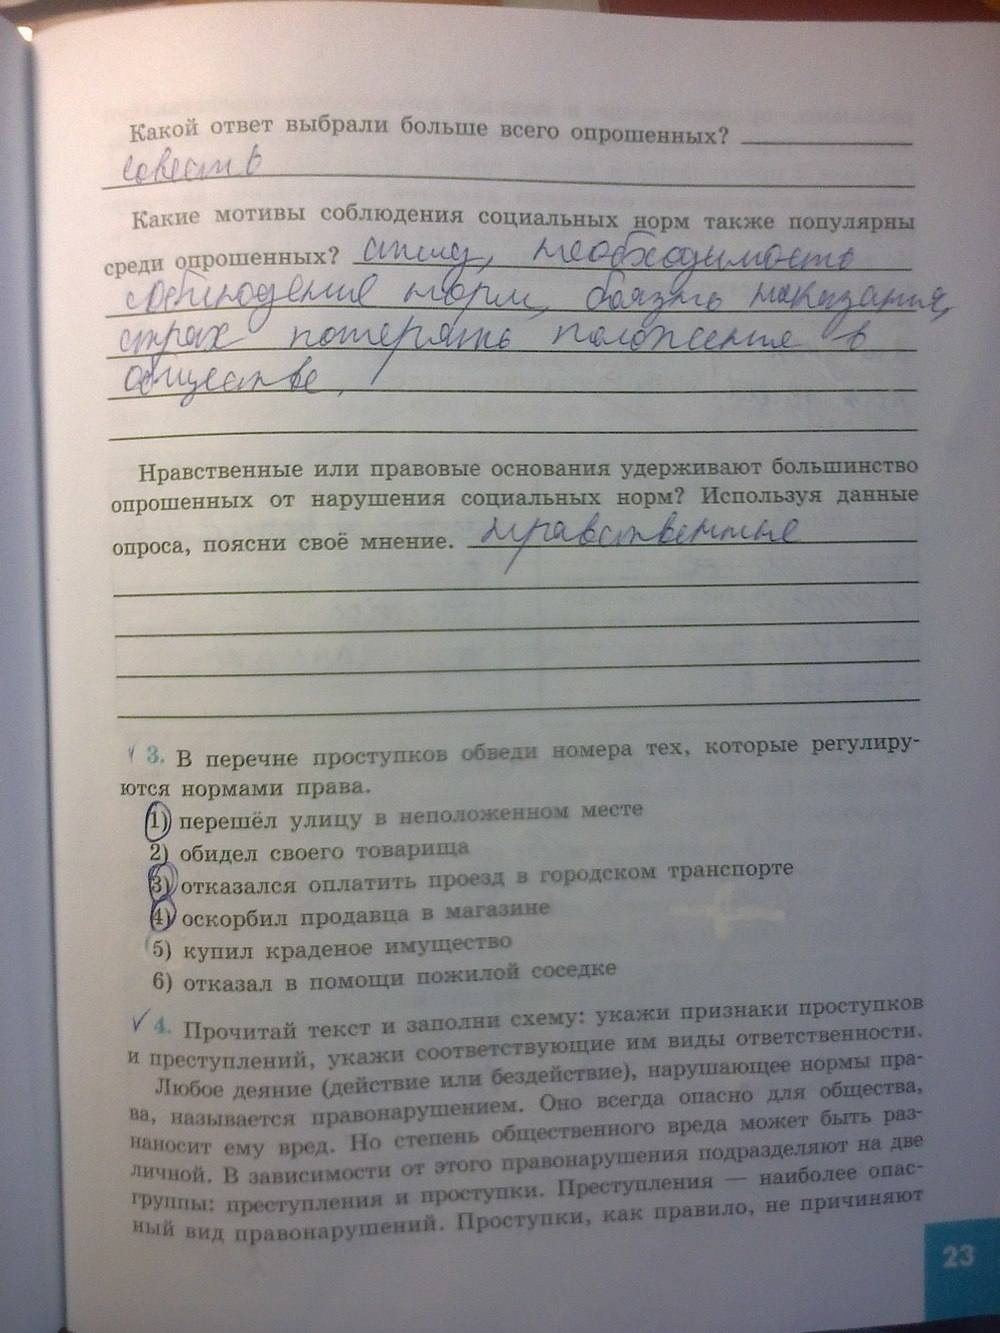 Какой ответ выбрали больше всего опрошенных?
совесть
Какие мотивы соблюдения социальных норм также популярны
среди опрошенных? стыд, необходимость
соблюдение норм, боязнь наказания,
страх потерять положение в
обществе.
Нравственные или правовые основания удерживают большинство
опрошенных от нарушения социальных норм? Используя данные
опроса, поясни своё мнение. нравственные
3. В перечне проступков обведи номера тех, которые регулиру-
ются нормами права.
1) перешёл улицу в неположенном месте
2) обидел своего товарища
3) отказался оплатить проезд в городском транспорте
4) оскорбил продавца в магазине
5) купил краденое имущество
6) отказал в помощи пожилой соседке
4. Прочитай текст и заполни схему: укажи признаки проступков
и преступлений, укажи соответствующие им виды ответственности.
Любое деяние (действие или бездействие), нарушающее нормы пра-
ва, называется правонарушением. Оно всегда опасно для общества,
наносит ему вред. Но степень общественного вреда может быть раз-
личной. В зависимости от этого правонарушения подразделяют на две
группы: преступления и проступки. Преступления — наиболее опас-
ный вид правонарушений. Проступки, как правило, не причиняют
23